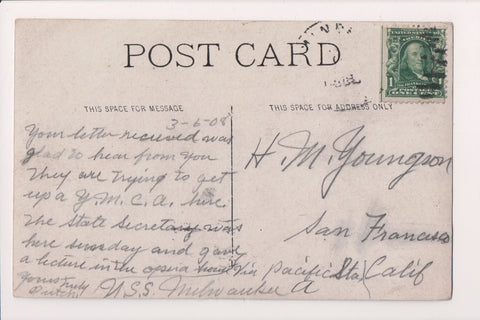 POST CARD
THIS SPACE FOR MESSAGE
THIS SPACE FOR ADDRESS ONLY
UNITED STATES
POSTAGE
1
ONE CENT
3-6-08
Your letter recieved was
glad to hear from you
They are trying to get
up a Y.M.C.A. here
The State Secretary was
here sunday and gave
a lecture in the opera house
Yours truly
H. M. Youngson
U.S.S. Milwaukee
San Francisco
Via Pacific Sta, Calif